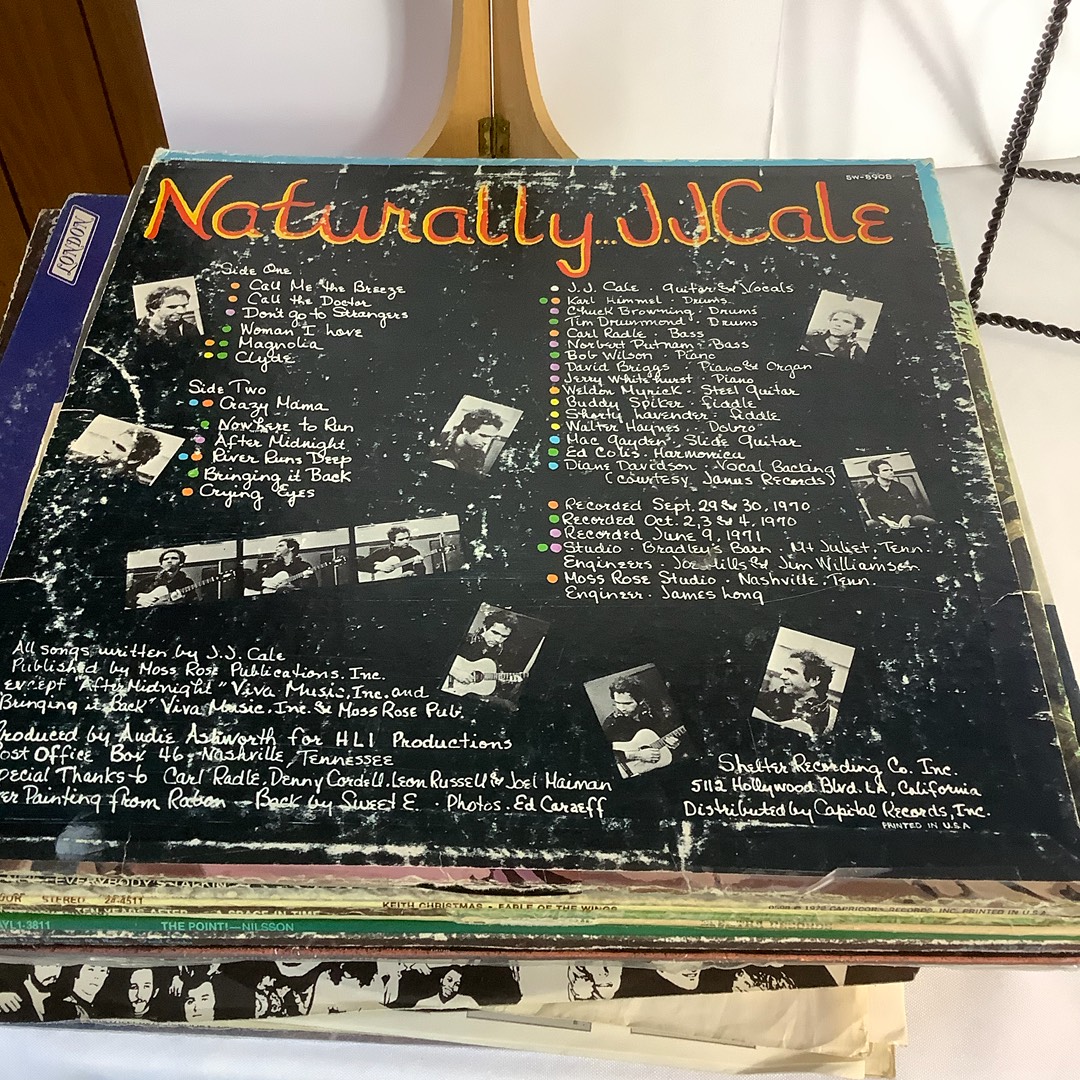 SW-8908
LONDON
Naturally...J.J.Cale
Side One
Call Me the Breeze
Call the Doctor
Don't go to Strangers
Woman I Love
Magnolia
Clyde
Side Two
Crazy Mama
Nowhere to Run
After Midnight
River Runs Deep
Bringing it Back
Crying Eyes
J.J. Cale · guitar & Vocals
Karl Himmel · Drums
Chuck Browning · Drums
Tim Drummond · Drums
Carl Radle · Bass
Norbert Putnam · Bass
Bob Wilson · Piano
David Briggs · Piano & Organ
Jerry Whitehurst · Piano
Weldon Myrick · Steel Guitar
Buddy Spiker · Fiddle
Shorty Lavender · Fiddle
Walter Haynes · Dobro
Mac Gayden · Slide Guitar
Ed Colis · Harmonica
Diane Davidson · Vocal Backing
(Courtesy Janus Records)
Recorded Sept. 29 & 30, 1970
Recorded Oct. 2, 3 & 4, 1970
Recorded June 9, 1971
Studio · Bradley's Barn · Mt Juliet, Tenn.
Engineers · Joe Mills & Jim Williamson
Moss Rose Studio · Nashville, Tenn.
Engineer · James Long
All songs written by J.J. Cale
Published by Moss Rose Publications, Inc.
except "After Midnight" Viva Music, Inc. and
"Bringing it Back" Viva Music, Inc. & Moss Rose Pub.
roduced by Audie Ashworth for HLI Productions
ost Office Box 46 · Nashville, Tennessee
pecial Thanks to Carl Radle, Denny Cordell, Leon Russell & Joel Maiman
er Painting from Rabon — Back by Sweet E. · Photos · Ed Caraeff
Shelter Recording Co. Inc.
5112 Hollywood Blvd. LA, California
Distributed by Capitol Records, Inc.
PRINTED IN U.S.A
EVERYBODY'S TALKIN'
STEREO 24-4511
KEITH CHRISTMAS • FABLE OF THE WINGS
TEN YEARS AFTER SPACE IN TIME
AYL1-3811 THE POINT!—NILSSON